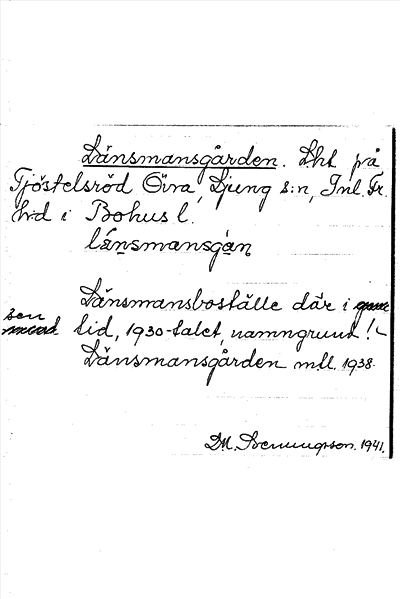 Länsmansgården. Lht på
Tjöstelsröd Övra, Ljung s:n, Inl. Fr.
h:d i Bohus l.
länsmansgån
Länsmansboställe där i
sen tid, 1930-talet, namngrund!
Länsmansgården mtl. 1938.
M. Benningsson. 1941.